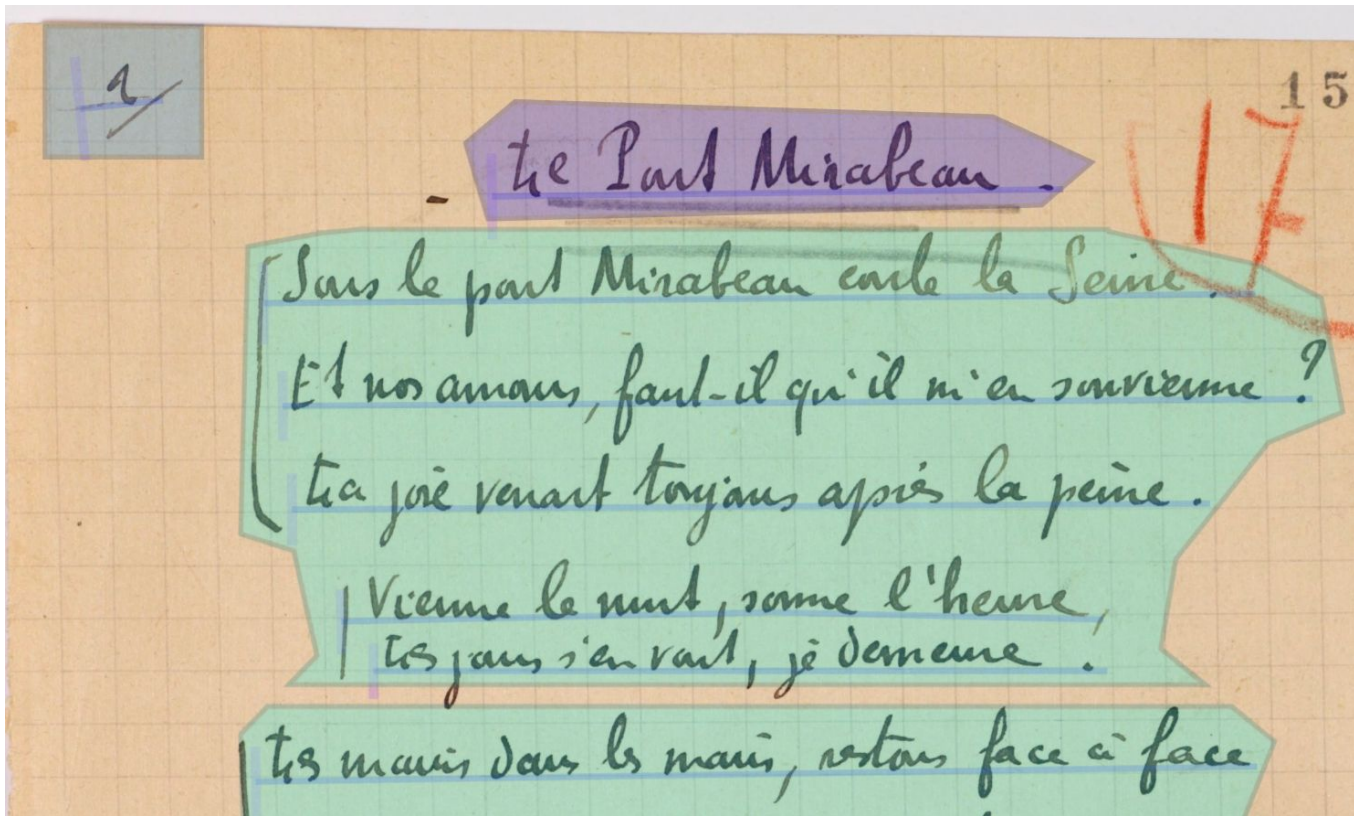 1/
15
17
- Le Pont Mirabeau.
Sous le pont Mirabeau coule la Seine.
Et nos amours, faut-il qu'il m'en souvienne ?
La joie venait toujours après la peine.
Vienne la nuit, sonne l'heure,
Les jours s'en vont, je demeure.
Les mains dans les mains, restons face à face